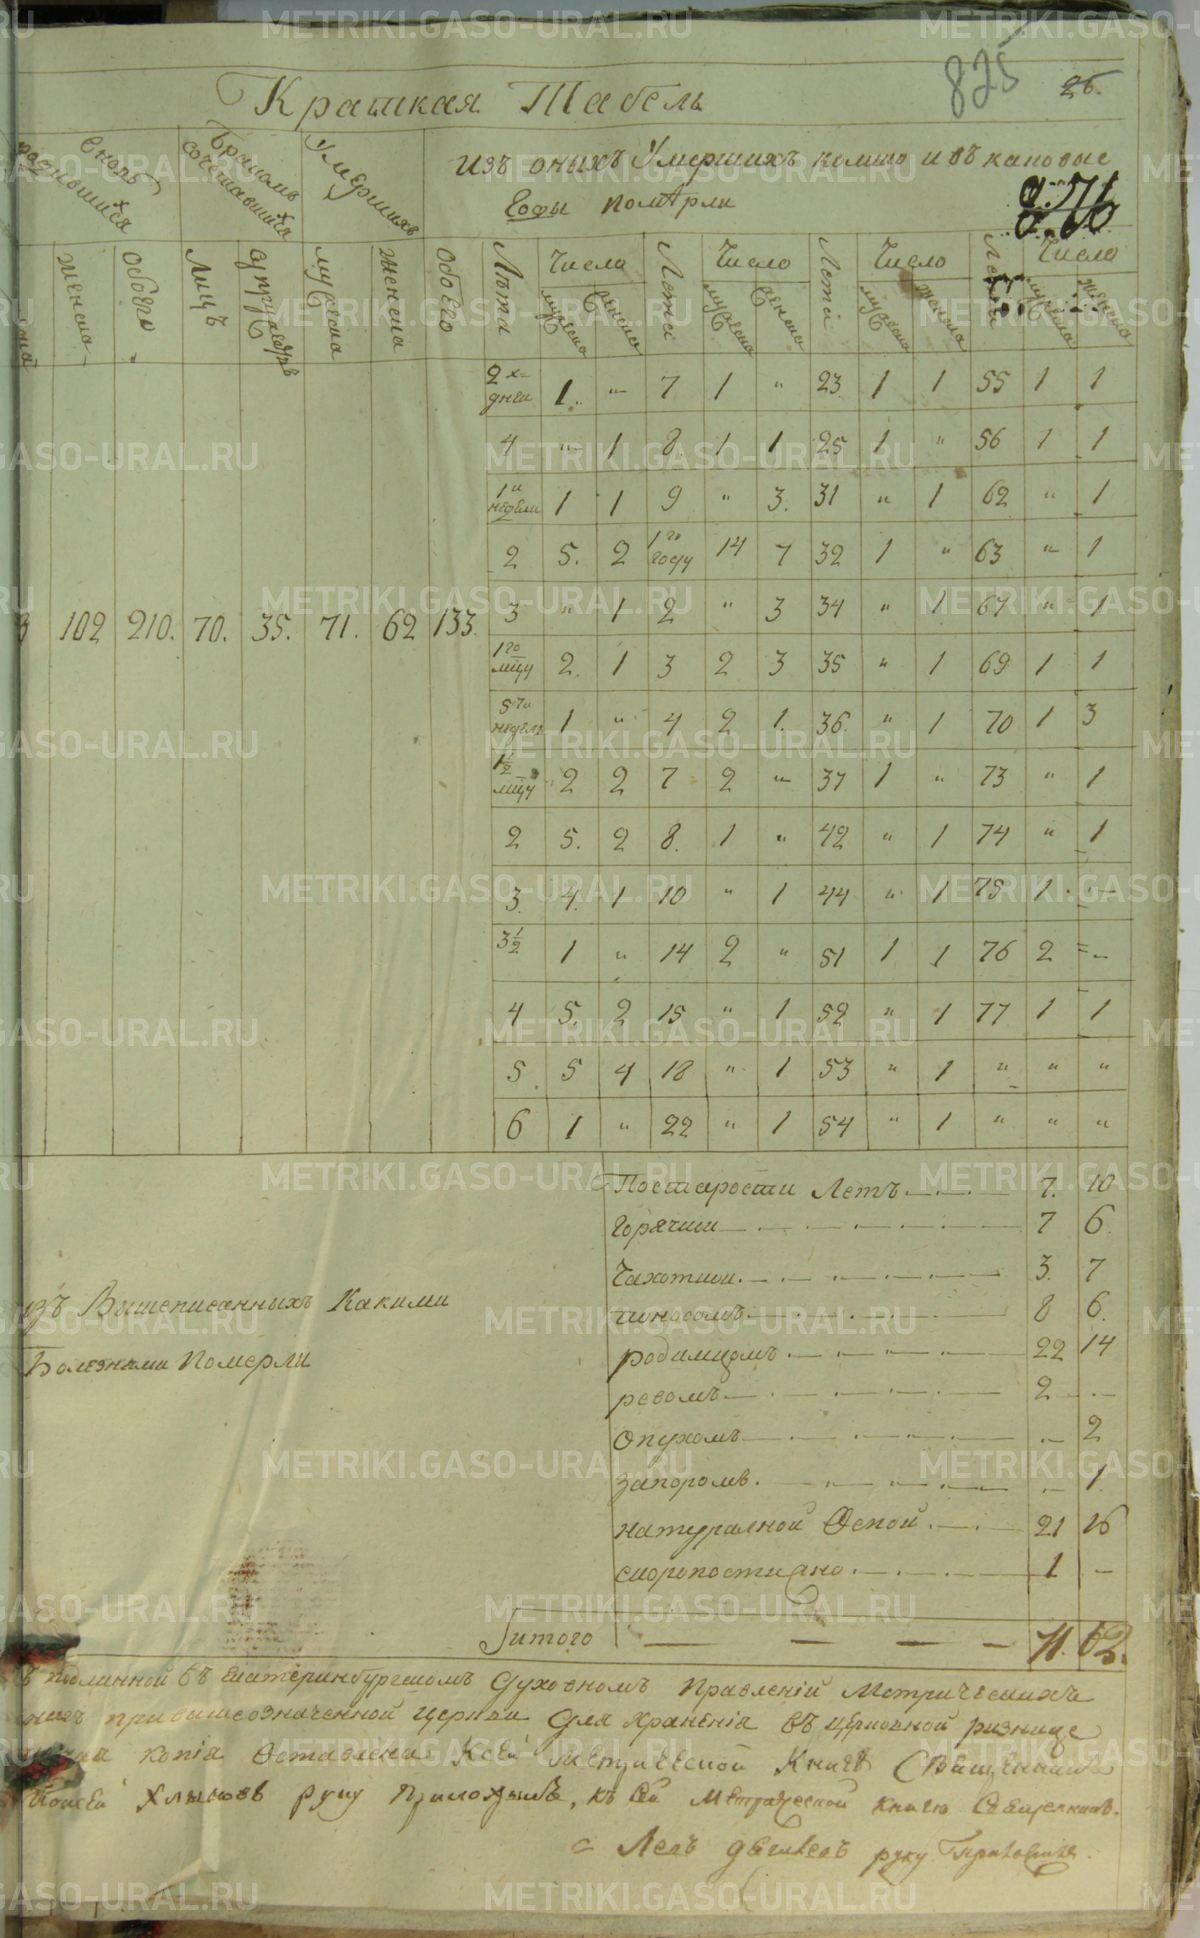 825
26.
Краткая Табель
Сколь родившихся
Бракомъ сочетавшихся
Умершихъ
Изъ оныхъ Умершихъ колико и въ каковые
Годы помѣрли
женска
обоего
Лицъ
супружествъ
мужеска
женска
обоего
Лѣта
Число
Лета
Число
Лета
Число
Число
мужеска
женска
мужеска
женска
мужеска
женска
мужеска
женска
2х дней 1. " 7 1 " 23 1 1 55 1 1
4 " 1 8 1 1 25 1 " 56 1 1
1й недели 1 1 9 " 3. 31 " 1 62 " 1
2 5. 2 1го году 14 7 32 1 " 63 " 1
3 " 1 2 " 3 34 " 1 67 " 1
102 210. 70. 35. 71. 62 133.
1го мцу 2. 1 3 2 3 35 " 1 69 1 1
5ти недель 1 " 4 2 1. 36. " 1 70 1 3
1½ мцу 2 2 7 2 " 37 1 " 73 " 1
2 5. 2 8. 1 " 42 " 1 74 " 1
3. 4. 1 10 " 1 44 " 1 75 1 -
3½ 1 " 14 2 " 51 1 1 76 2 -
4 5. 2 15 " 1 52 " 1 77 1 1
5. 5 4 18 " 1 53 " 1 " " "
6 1 " 22 " 1 54 " 1 " " "
По старости Летъ 7. 10
Горячкои 7 6.
Чахоткои. 3. 7
поносомъ 8 6.
родимцомъ 22 14
ревомъ 2 -
Опухомъ - 2
запоромъ. - 1.
натуралной Оспой 21 16
скоропостижно 1 -
изъ Вышеписанныхъ Какими
Болезнами Померли
Итого 71. 62.
подлинной въ Екатеринбургскомъ Духовномъ Правленіи Метрическихъ
книгъ при вышеозначенной церкви для храненія въ церковной ризнице
копія Оставлена К сей метрической Книге Священникъ
Хлыновъ руку приложилъ, къ сей метрической книгѣ Священникъ
руку приложилъ.
METRIKI.GASO-URAL.RU